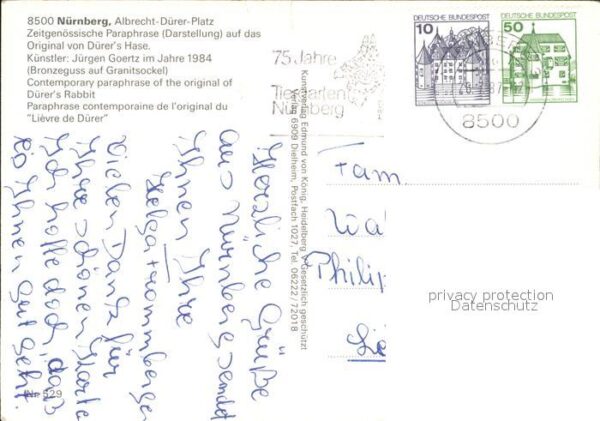 8500 Nürnberg, Albrecht-Dürer-Platz
Zeitgenössische Paraphrase (Darstellung) auf das
Original von Dürer's Hase.
Künstler: Jürgen Goertz im Jahre 1984
(Bronzeguss auf Granitsockel)
Contemporary paraphrase of the original of
Dürer's Rabbit
Paraphrase contemporaine de l'original du
"Lièvre de Dürer"
75 Jahre
Tiergarten
Nürnberg
10
DEUTSCHE BUNDESPOST
50
DEUTSCHE BUNDESPOST
8500
Kunstverlag Edmund von König, Heidelberg · Gesetzlich geschützt
Verlag 6909 Dielheim, Postfach 1027, Tel. 06222/72018
Herzliche Grüße
aus Nürnberg sendet
Ihnen Ihre
Helga
Vielen Dank für
Ihre schönen Karte
Ich hoffe doch, daß
es Ihnen gut geht.
Fam
Wa
Philip
privacy protection
Datenschutz
Nr. 529